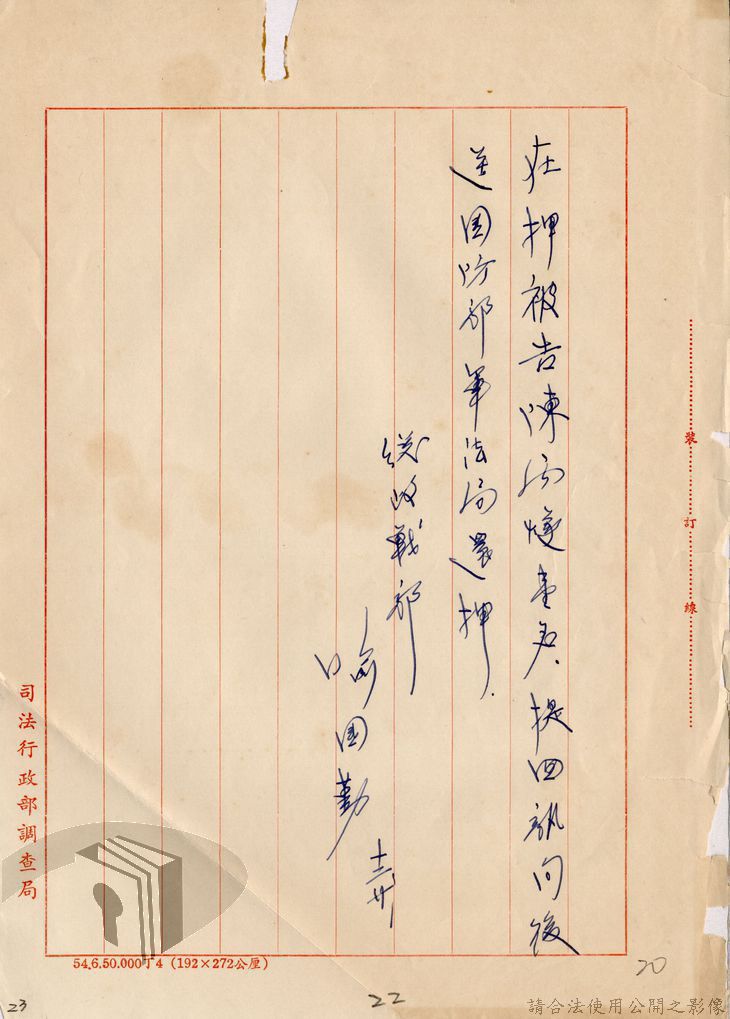 裝訂線
在押被告陳燧壹名、提回訊问後
送国防部軍法局還押.
总政戰部
喻国勤
司法行政部調查局
54.6.50.000丁4 (192×272公厘)
20
22
23
請合法使用公開之影像